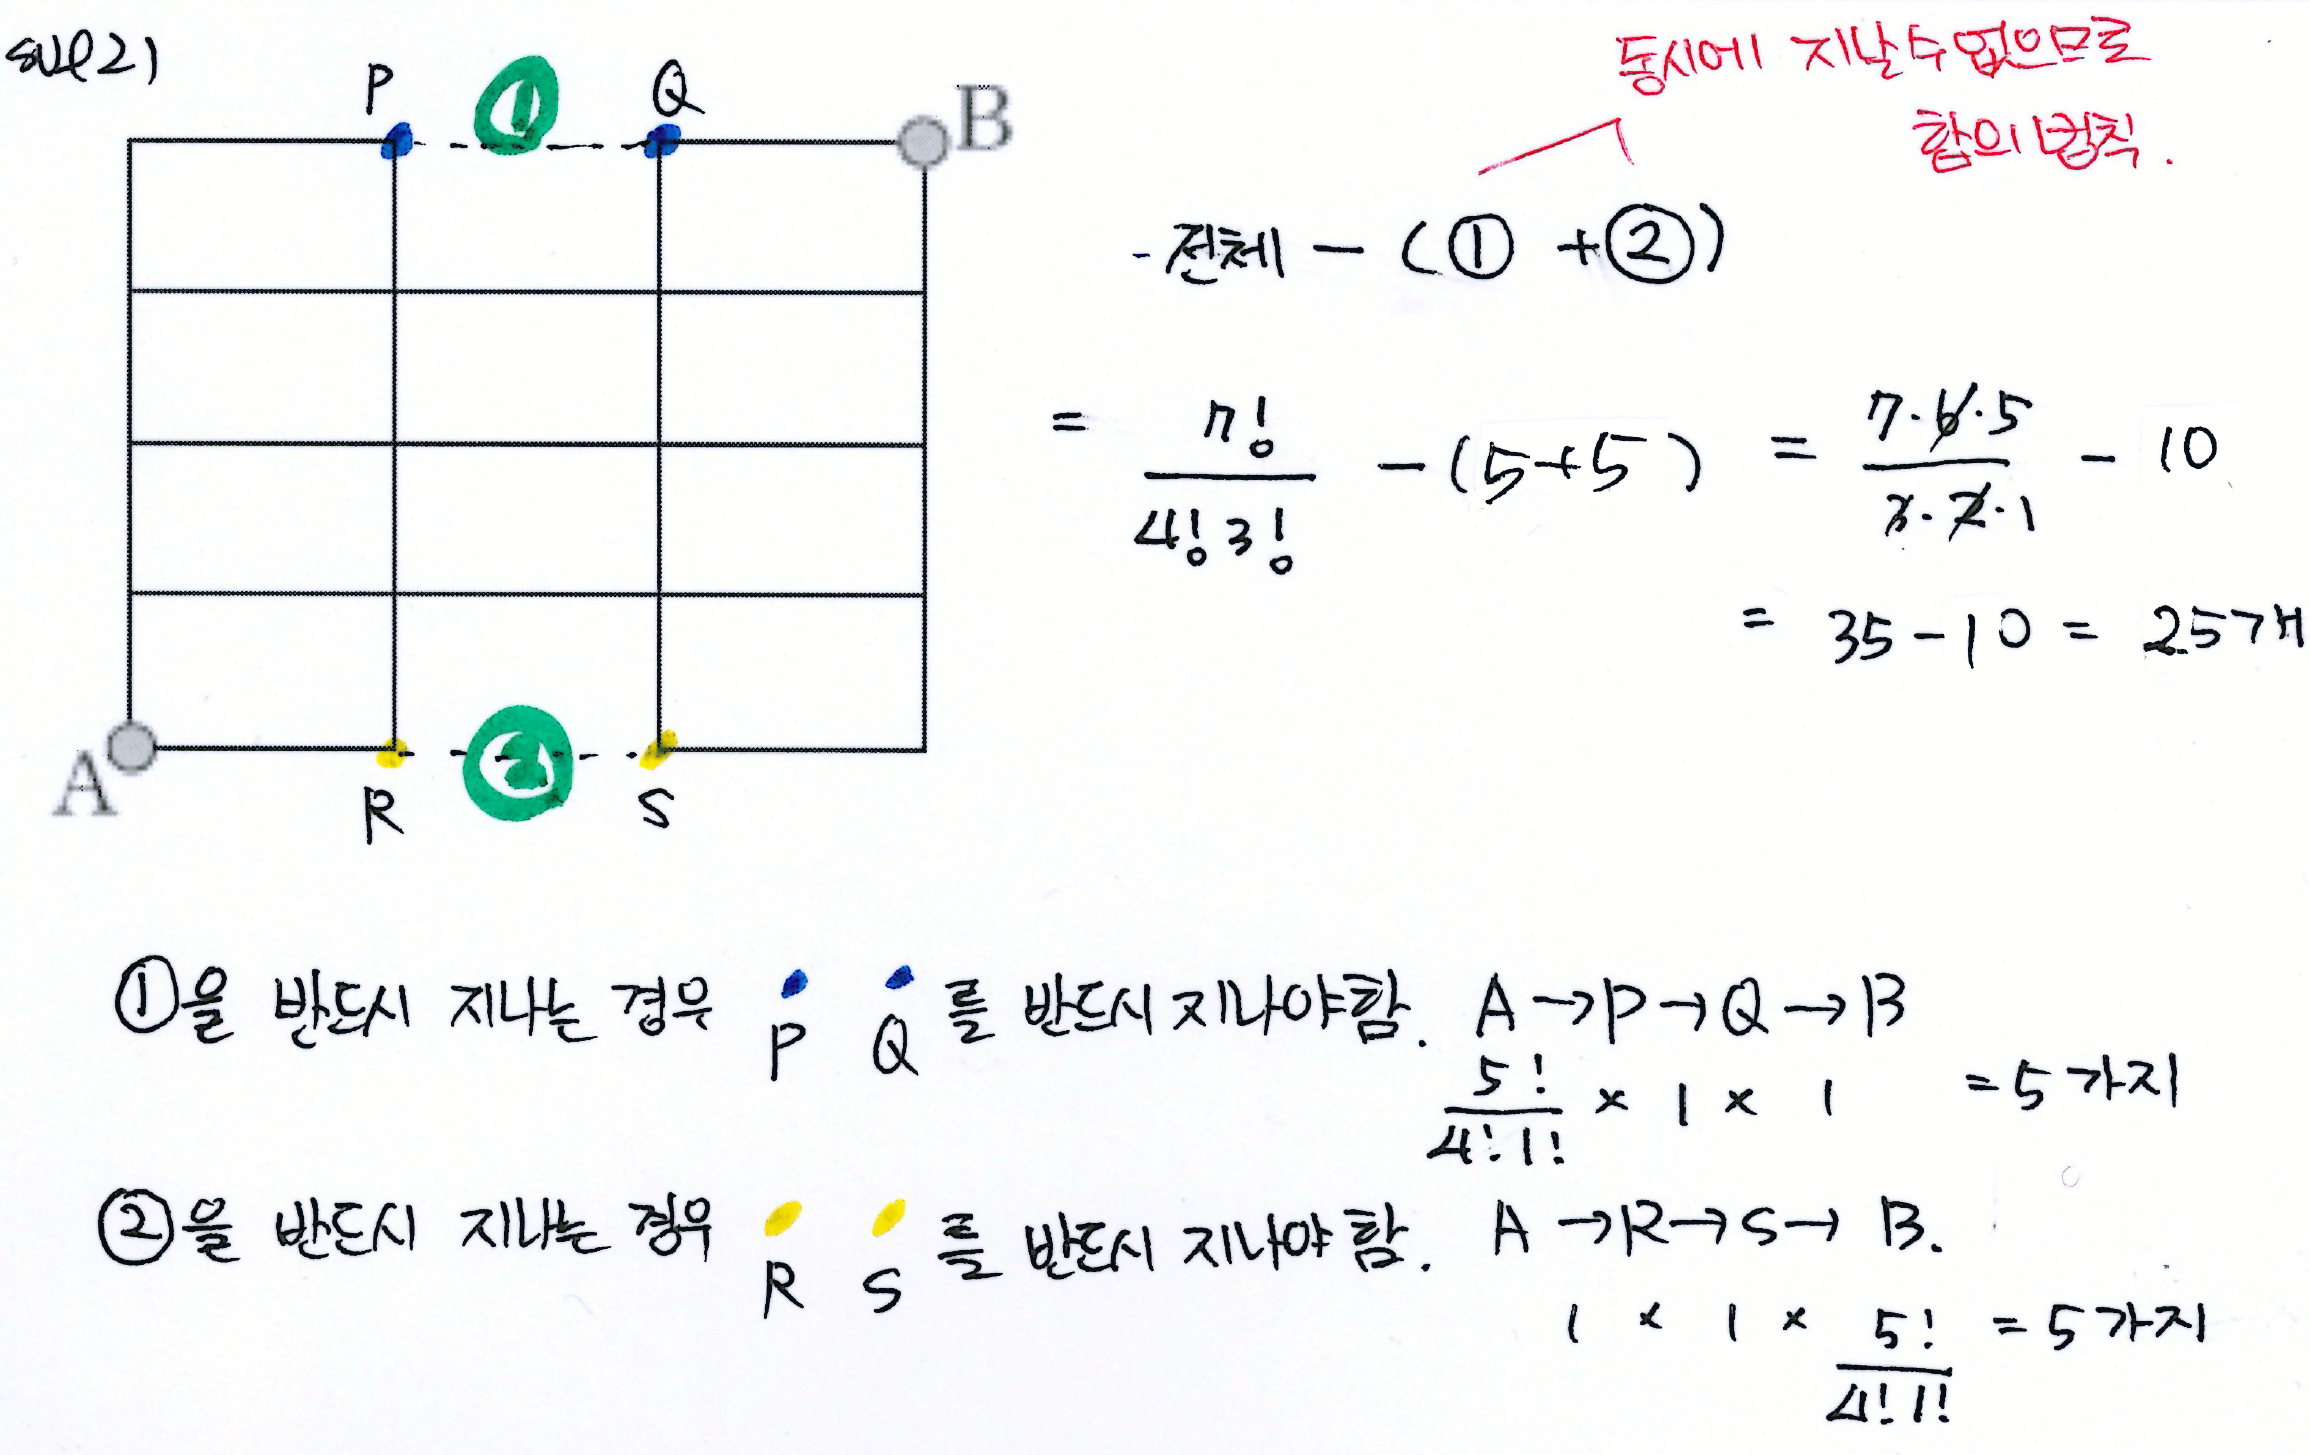 sol2)
P ① Q B
A R ② S
동시에 지날 수 없으므로
합의 법칙.
전체 - (① + ②)
= 7!/4!3! - (5+5) = 7·6·5/3·2·1 - 10
= 35 - 10 = 25개
①을 반드시 지나는 경우 P Q를 반드시 지나야 함. A → P → Q → B
5!/4!1! × 1 × 1 = 5가지
②을 반드시 지나는 경우 R S를 반드시 지나야 함. A → R → S → B.
1 × 1 × 5!/4!1! = 5가지